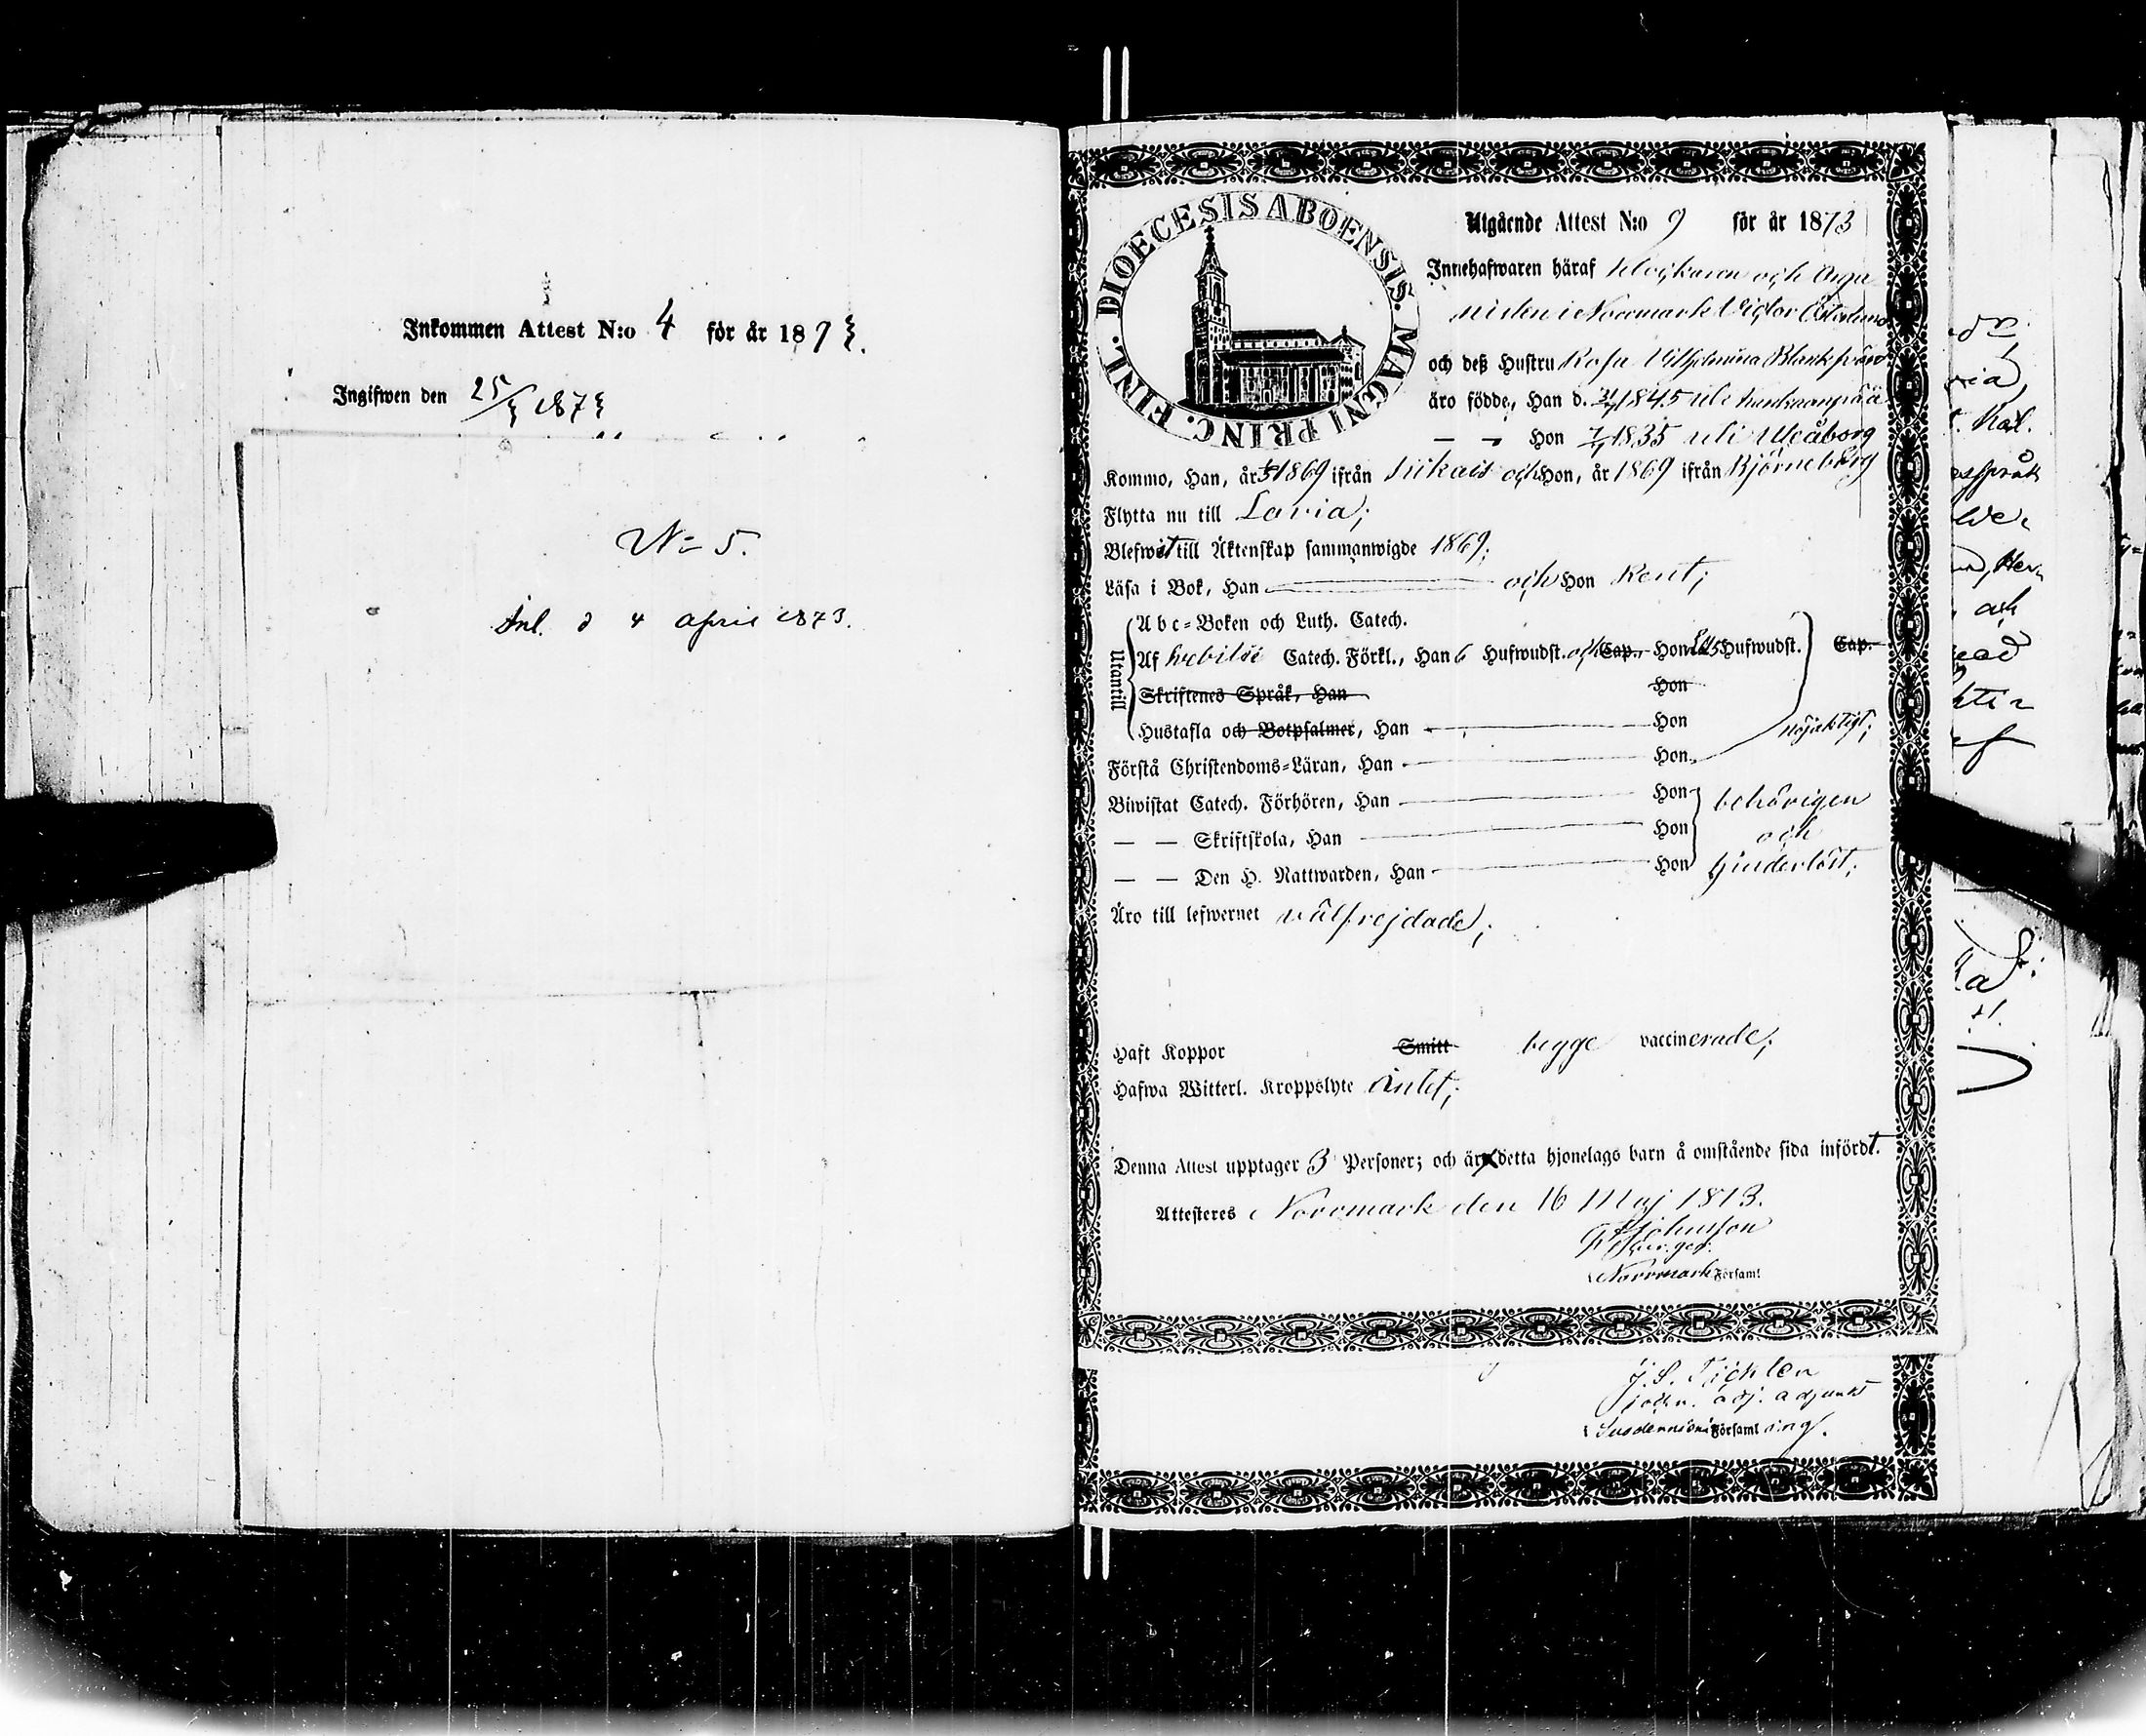 Inkommen Attest N:o 4 för år 1873.
Ingifwen den 25/3 1873
N= 5.
Inl. d 4 april 1873.
DIOECESIS ABOENSIS. MAGNI PRINC. FINL.
Utgående Attest N:o 9 för år 1873
Innehafwaren häraf Klockaren och Orga
nisten i Norrmark Victor Österlund
och deß Hustru Rosa Vilhelmina Blankfärd
äro födde, Han d. 1845 uti Kankaanpää
— — Hon 1835 uti Uleåborg
Kommo, Han, år 1869 ifrån Siikais och Hon, år 1869 ifrån Björneborg
Flytta nu till Lavia;
Blefwit till Äktenskap sammanwigde 1869;
Läsa i Bok, Han och Hon Rent;
Utantill
Abc-Boken och Luth. Catech.
Af Svebilii Catech. Förkl., Han 6 Hufwudst. och Cap., Hon 5 Hufwudst. Cap.
Skriftenes Språk, Han Hon
Hustafla och Botpsalmer, Han Hon nöjaktigt;
Förstå Christendoms-Läran, Han Hon
Biwistat Catech. Förhören, Han Hon behörigen
— — Skriftskola, Han Hon och
— — Den H. Nattwarden, Han Hon hinderlöst;
Äro till lefwernet wälfrejdade;
Haft Koppor Smitt begge vaccinerade;
Hafwa Witterl. Kroppslyte intet;
Denna Attest upptager 3 Personer; och är detta hjonelags barn å omstående sida infördt.
Attesteres Norrmark den 16 Maj 1873.
Johnsson
Norrmark Församl
J. S. Tichlen
adj. adjunkt
Suodenniemi Församling.